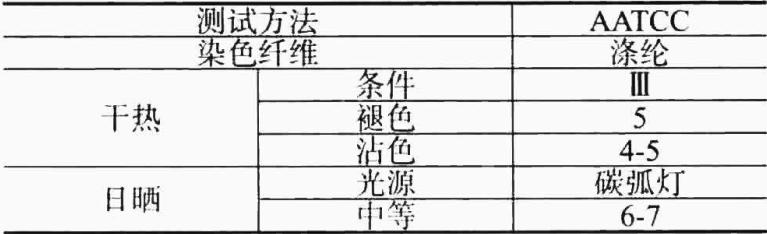 测试方法 AATCC
染色纤维 涤纶
干热 条件 Ⅲ
褪色 5
沾色 4-5
日晒 光源 碳弧灯
中等 6-7